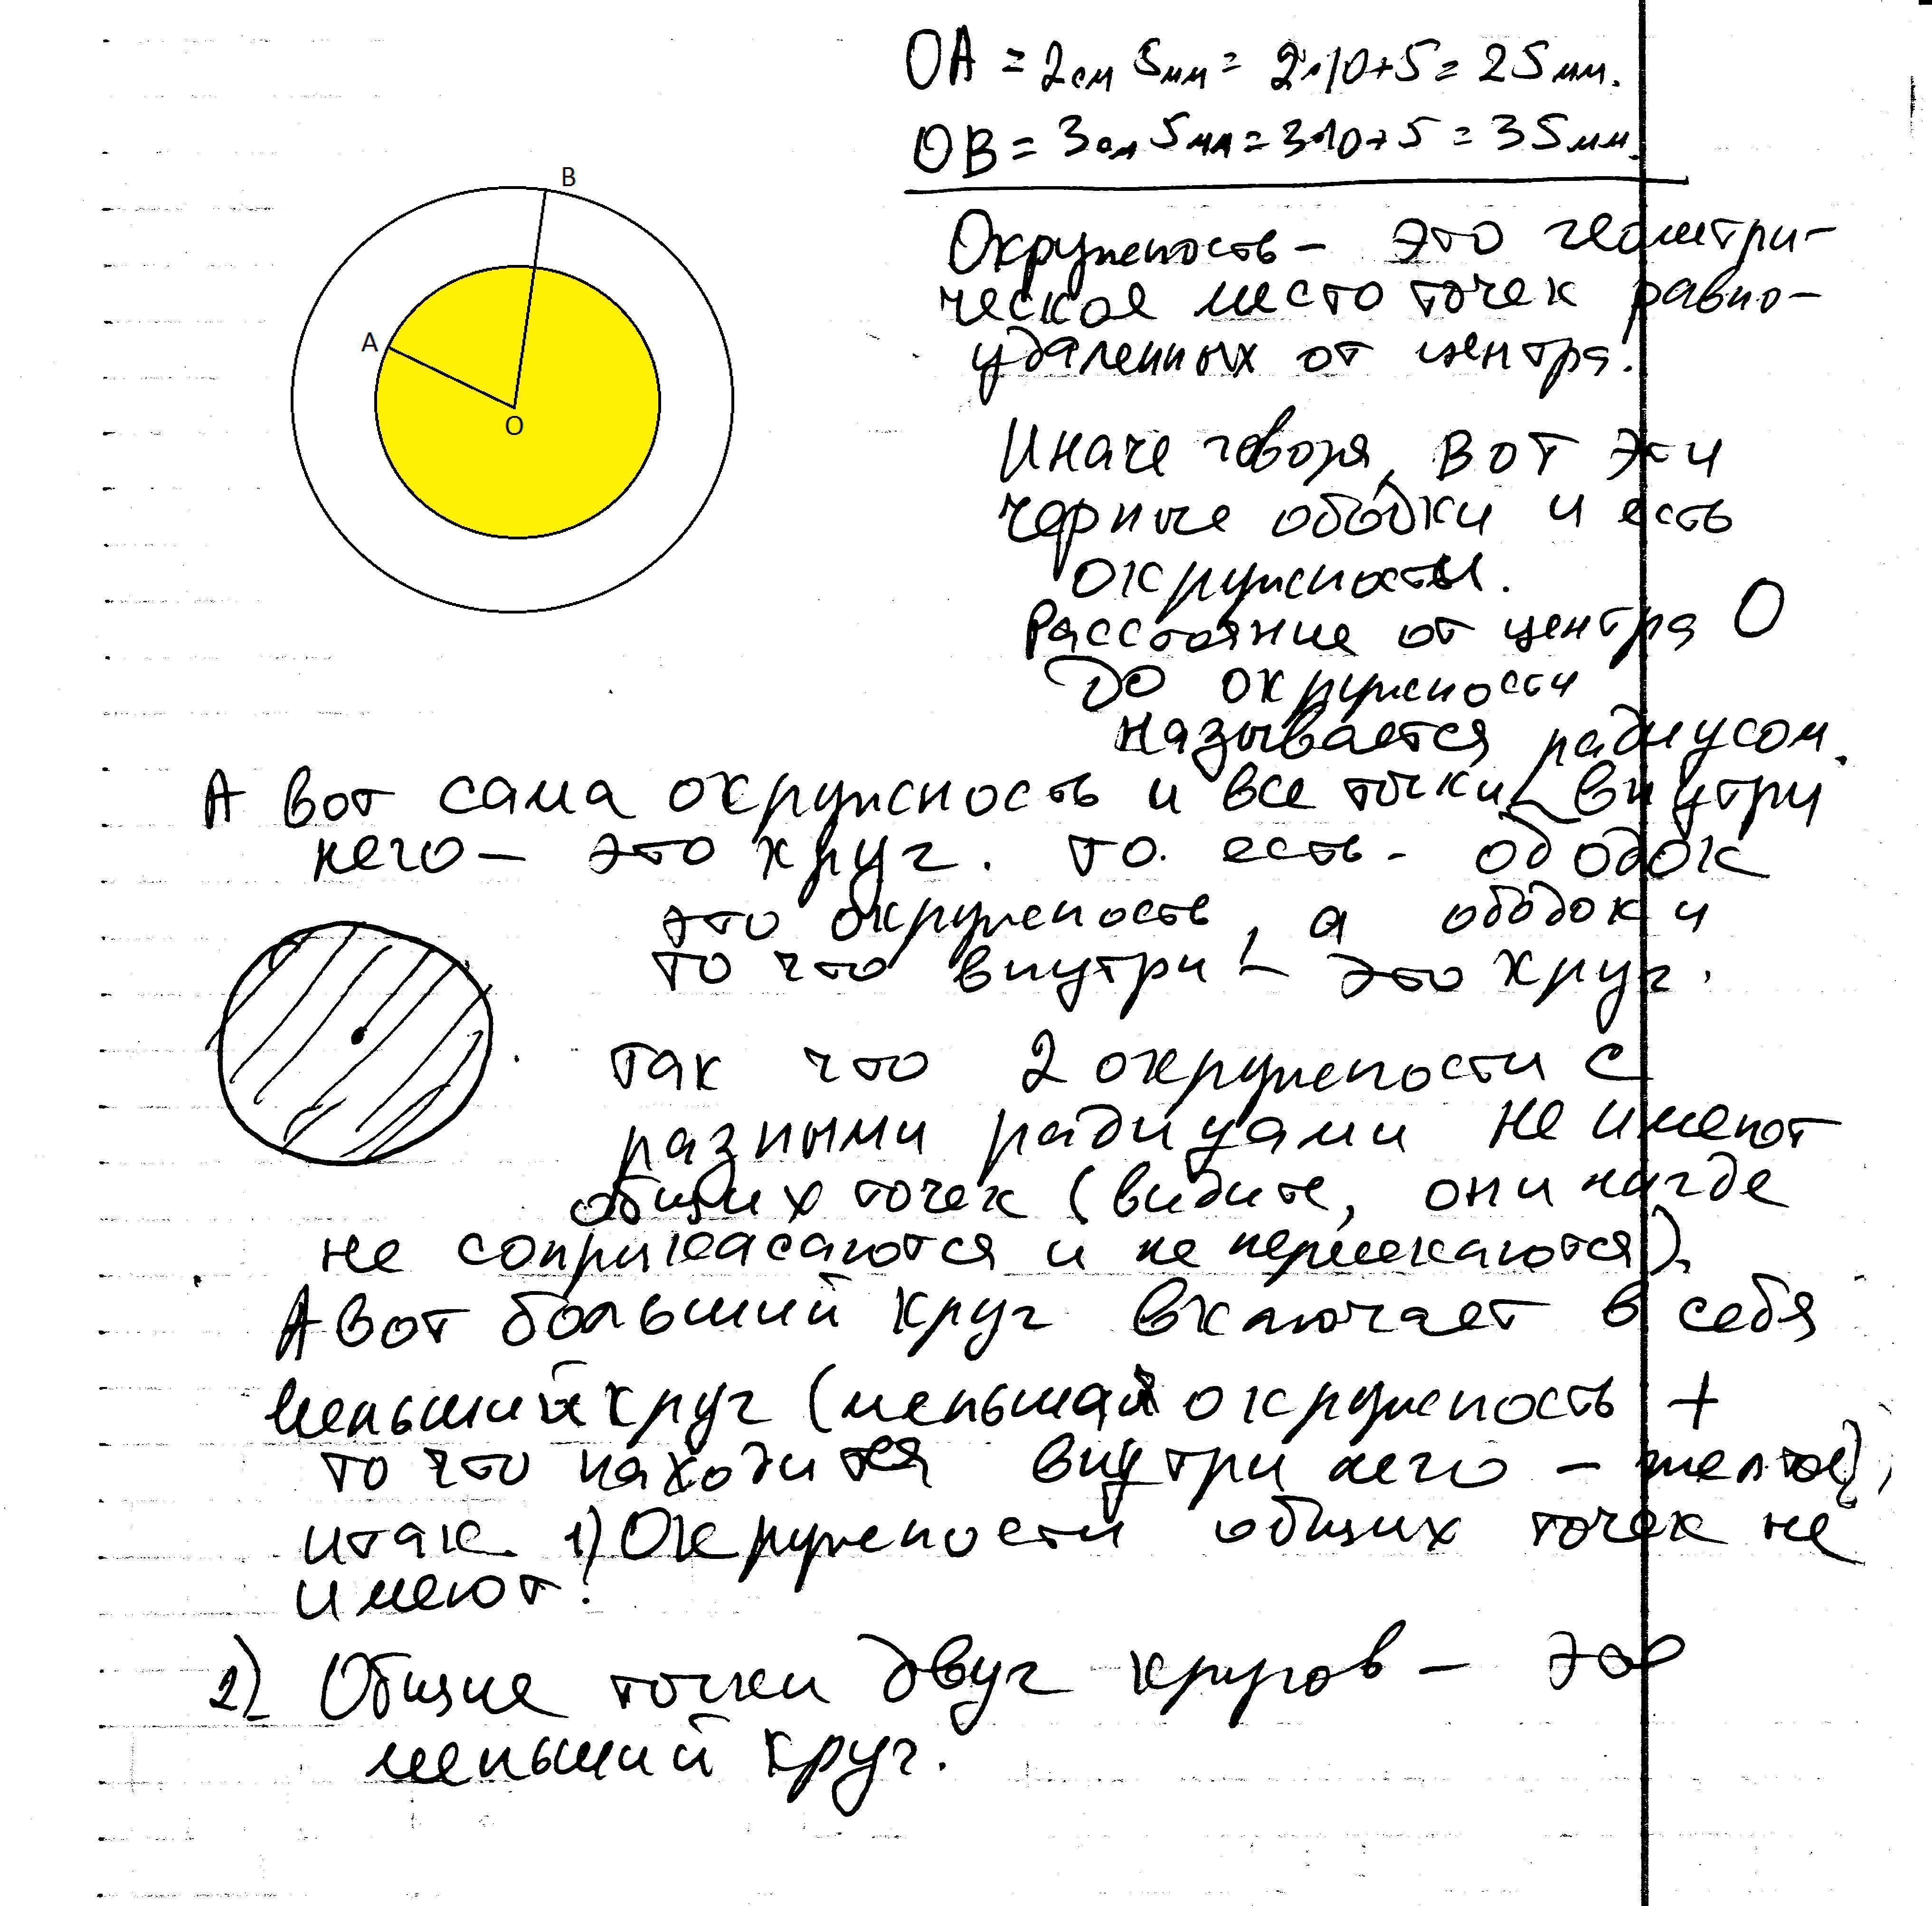 B
A
O
OA = 2см 5мм = 2·10+5 = 25мм.
OB = 3см 5мм = 3·10+5 = 35мм.
Окружность – это геометри-
ческое место точек равно-
удаленных от центра.
Иначе говоря, вот эти
черные ободки и есть
окружности.
Расстояние от центра О
до окружности
называется радиусом.
А вот сама окружность и все точки внутри
него – это круг. то есть - ободок
это окружность, а ободок и
то что внутри – это круг.
Так что 2 окружности с
разными радиуами не имеют
общих точек (видите, они нигде
не соприкасаются и не пересекаются).
А вот больший круг включает в себя
меньший круг (меньшая окружность +
то что находится внутри него – желтое),
итак 1) Окружности общих точек не
имеют.
2) Общие точки двух кругов – это
меньший круг.